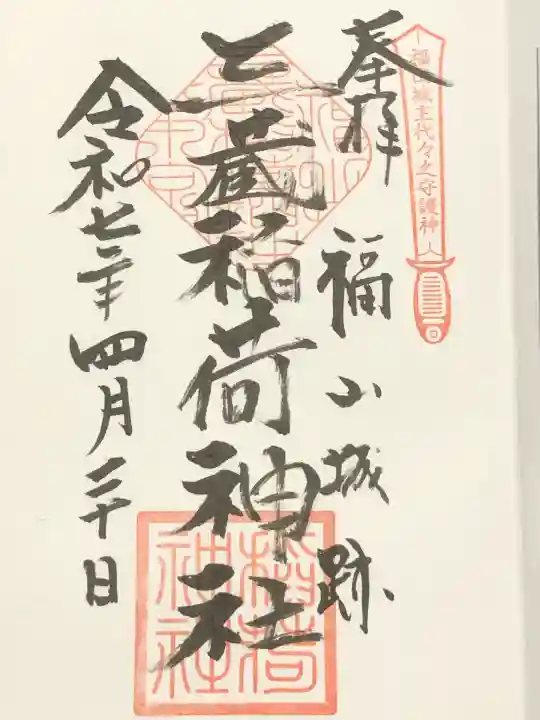 福山城主代々之守護神
奉拝
福山城跡
三蔵稲荷神社
稲荷神社
令和七年四月二十日